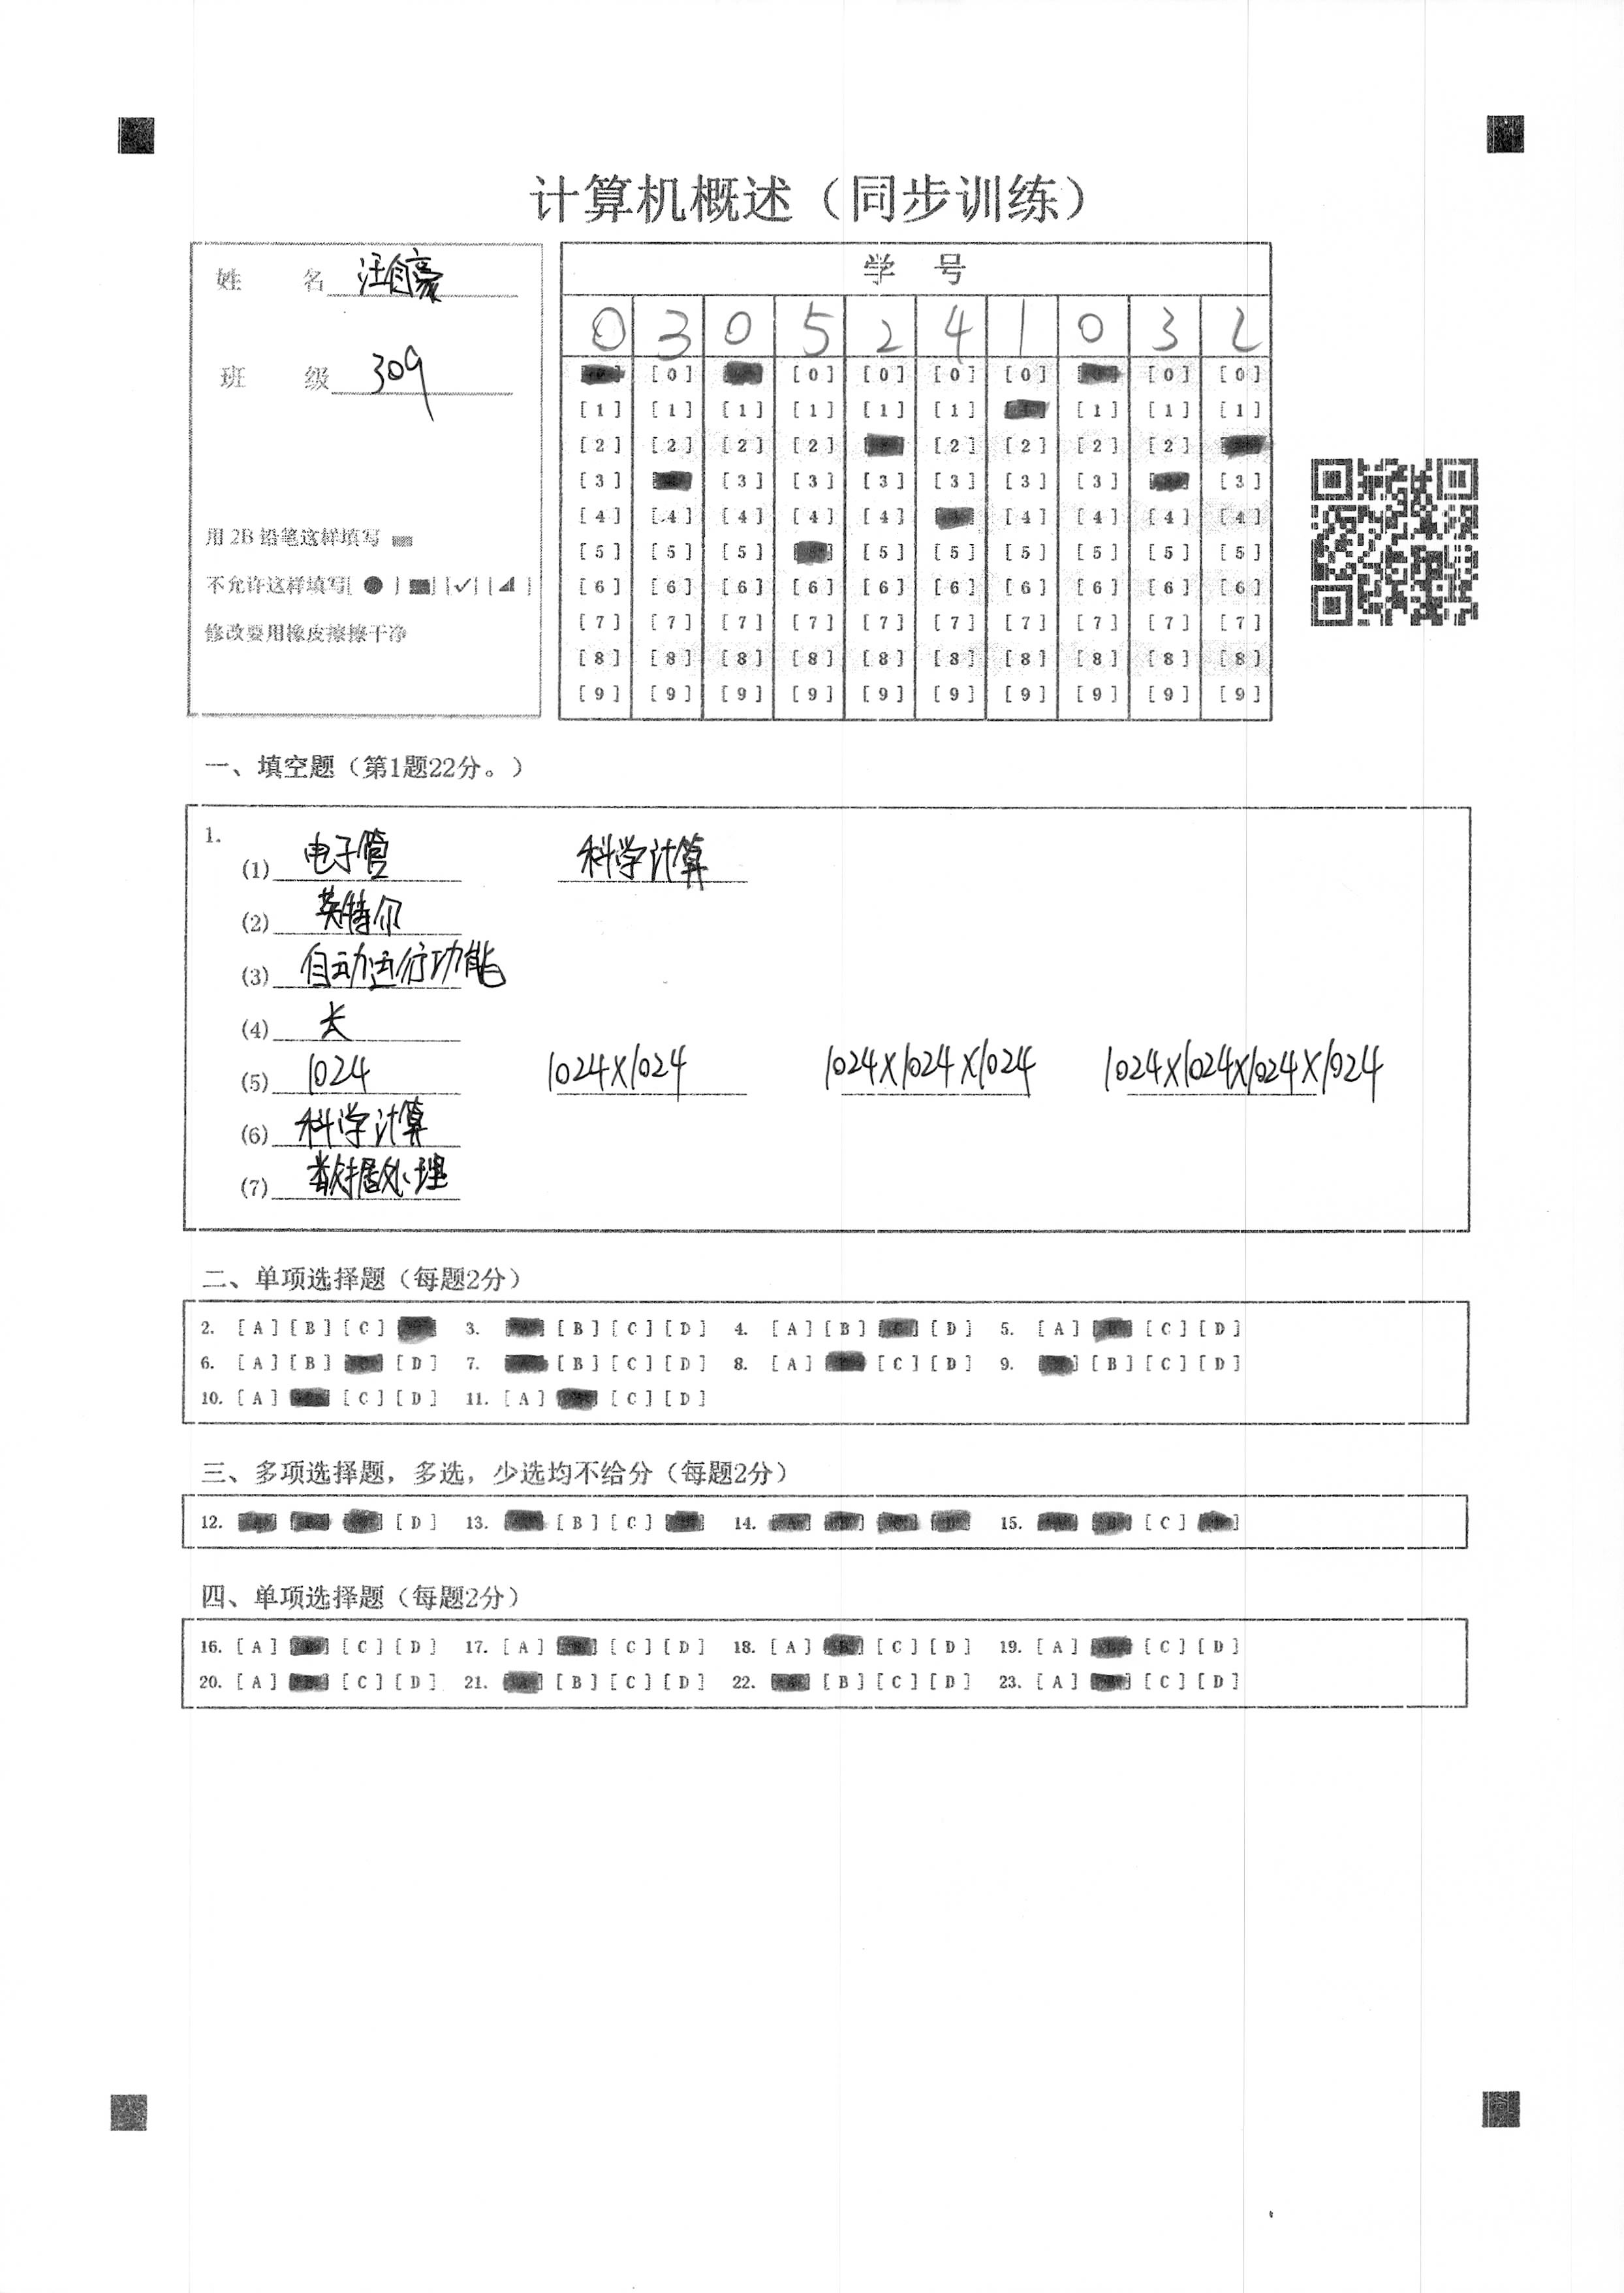 计算机概述（同步训练）
姓 名 汪自豪
班 级 309
用 2B 铅笔这样填写
不允许这样填写[ ● ] [■] [✓] [◢ ]
修改要用橡皮擦擦干净
学 号
0 3 0 5 2 4 1 0 3 2
[0] [0] [0] [0] [0] [0] [0]
[1] [1] [1] [1] [1] [1] [1] [1] [1]
[2] [2] [2] [2] [2] [2] [2] [2]
[3] [3] [3] [3] [3] [3] [3] [3]
[4] [4] [4] [4] [4] [4] [4] [4] [4]
[5] [5] [5] [5] [5] [5] [5] [5] [5]
[6] [6] [6] [6] [6] [6] [6] [6] [6] [6]
[7] [7] [7] [7] [7] [7] [7] [7] [7] [7]
[8] [8] [8] [8] [8] [8] [8] [8] [8] [8]
[9] [9] [9] [9] [9] [9] [9] [9] [9] [9]
一、填空题（第1题22分。）
1.
(1) 电子管 科学计算
(2) 英特尔
(3) 自动运行功能
(4) 长
(5) 1024 1024×1024 1024×1024×1024 1024×1024×1024×1024
(6) 科学计算
(7) 数据处理
二、单项选择题（每题2分）
2. [A] [B] [C] 3. [B] [C] [D] 4. [A] [B] [D] 5. [A] [C] [D]
6. [A] [B] [D] 7. [B] [C] [D] 8. [A] [C] [D] 9. [B] [C] [D]
10. [A] [C] [D] 11. [A] [C] [D]
三、多项选择题，多选，少选均不给分（每题2分）
12. [D] 13. [B] [C] 14. 15. [C]
四、单项选择题（每题2分）
16. [A] [C] [D] 17. [A] [C] [D] 18. [A] [C] [D] 19. [A] [C] [D]
20. [A] [C] [D] 21. [B] [C] [D] 22. [B] [C] [D] 23. [A] [C] [D]